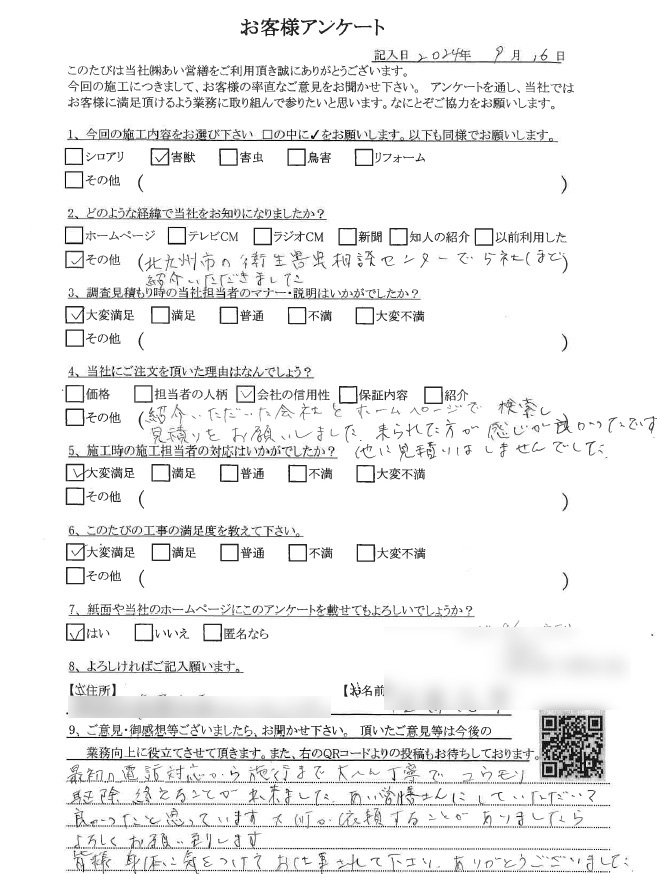 お客様アンケート
記入日 2024年 9月 16日
このたびは当社㈱あい営繕をご利用頂き誠にありがとうございます。
今回の施工につきまして、お客様の率直なご意見をお聞かせ下さい。 アンケートを通し、当社では
お客様に満足頂けるよう業務に取り組んで参りたいと思います。なにとぞご協力をお願いします。
1、今回の施工内容をお選び下さい □の中に✓をお願いします。以下も同様でお願いします。
□シロアリ ☑害獣 □害虫 □鳥害 □リフォーム
□その他 ( )
2、どのような経緯で当社をお知りになりましたか？
□ホームページ □テレビCM □ラジオCM □新聞 □知人の紹介 □以前利用した
☑その他 (北九州市の衛生害虫相談センターで5社(まど)
紹介いただきました
3、調査見積もり時の当社担当者のマナー・説明はいかがでしたか？
☑大変満足 □満足 □普通 □不満 □大変不満
□その他 ( )
4、当社にご注文を頂いた理由はなんでしょう？
□価格 □担当者の人柄 ☑会社の信用性 □保証内容 □紹介
□その他 (紹介いただいた会社をホームページで 検索し
見積りをお願いしました. 来られた方が感じが良かったです
5、施工時の施工担当者の対応はいかがでしたか？ (他に見積りはしませんでした.
☑大変満足 □満足 □普通 □不満 □大変不満
□その他 ( )
6、このたびの工事の満足度を教えて下さい。
☑大変満足 □満足 □普通 □不満 □大変不満
□その他 ( )
7、紙面や当社のホームページにこのアンケートを載せてもよろしいでしょうか？
☑はい □いいえ □匿名なら
8、よろしければご記入願います。
【ご住所】 【お名前
9、ご意見・御感想等ございましたら、お聞かせ下さい。 頂いたご意見等は今後の
業務向上に役立てさせて頂きます。また、右のQRコードよりの投稿もお待ちしております。
最初の電話対応から施行まで大へん丁寧でコウモリ
駆除 終えることが出来ました. あい営繕さんにしていただいて
良かったなと思っています 又何か依頼することがありましたら
よろしくお願い致します
皆様 身体に気をつけてお仕事されて下さい. ありがとうございました.